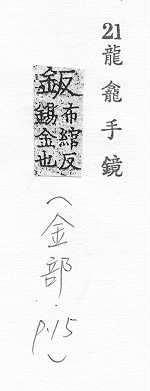 21 龍龕手鏡
鈑
布綰反
錫金也
(金部. p.15)